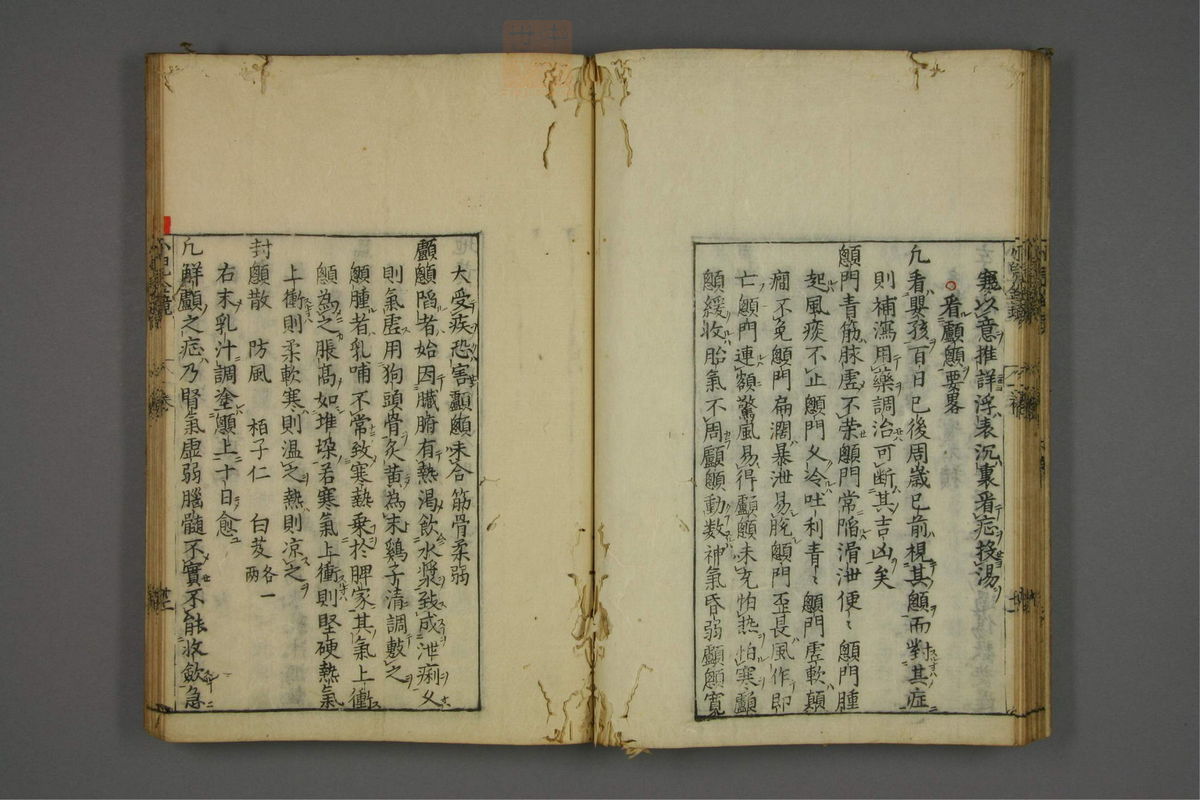 寒以意推詳浮表沉裏看症投湯
○看顱顖要畧
凡看嬰孩百日已後周歲已前視其顖而對其症
則補瀉用藥調治可断其吉凶矣
顖門青筋脉虚不荣顖門常陷滑泄便〻顖門腫
起風痰不止顖門久冷吐利青〻顖門虚軟顛
癇不免顖門扁濶暴泄易脫顖門歪長風作即
亡顖門連額驚風易得顱顖未充怕熱怕寒顱
顖緩收胎氣不周顱顖動数神氣昏弱顱顖寛
大受疾恐害顱顖未合筋骨柔弱
顱顖陷者始因臓腑有熱渴飲水漿致成泄痢久
則氣虚用狗頭骨灸黄為末鷄子清調敷之
顖腫者乳哺不常致寒熱乗於脾家其氣上衝
顖為之脹高如堆垜若寒氣上衝則堅硬熱氣
上衝則柔軟寒則温之熱則凉之
封顖散 防風 栢子仁 白芨各一两
右末乳汁調塗顖上十日愈
凡解顱之症乃腎氣虚弱腦髓不實不能收歛急